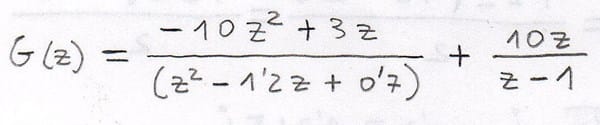 G(z) = \frac{-10z^2 + 3z}{(z^2 - 1'2z + 0'7)} + \frac{10z}{z - 1}